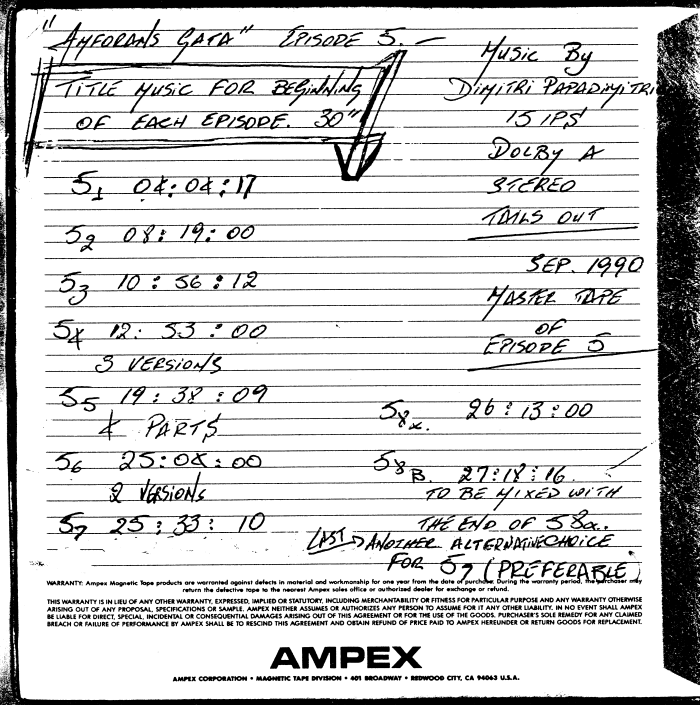 "AMFORANS GATA" EPISODE 5. —
TITLE MUSIC FOR BEGINNING
OF EACH EPISODE. 30"
5₁ 04:04:17
5₂ 08:19:00
5₃ 10:56:12
5₄ 12:53:00
3 VERSIONS
5₅ 19:38:09
4 PARTS
5₆ 25:04:00
2 VERSIONS
5₇ 25:33:10
MUSIC BY
DIMITRI PAPADIMITRI
15 IPS
DOLBY A
STEREO
TAILS OUT
SEP. 1990
MASTER TAPE
OF
EPISODE 5
5₈α. 26:13:00
5₈B. 27:18:16
TO BE MIXED WITH
THE END OF 58α.
LAST → ANOTHER ALTERNATIVE CHOICE
FOR 5₇ (PREFERABLE)
WARRANTY: Ampex Magnetic Tape products are warranted against defects in material and workmanship for one year from the date of purchase. During the warranty period, the purchaser may
return the defective tape to the nearest Ampex sales office or authorized dealer for exchange or refund.
THIS WARRANTY IS IN LIEU OF ANY OTHER WARRANTY, EXPRESSED, IMPLIED OR STATUTORY, INCLUDING MERCHANTABILITY OR FITNESS FOR PARTICULAR PURPOSE AND ANY WARRANTY OTHERWISE
ARISING OUT OF ANY PROPOSAL, SPECIFICATIONS OR SAMPLE. AMPEX NEITHER ASSUMES OR AUTHORIZES ANY PERSON TO ASSUME FOR IT ANY OTHER LIABILITY. IN NO EVENT SHALL AMPEX
BE LIABLE FOR DIRECT, SPECIAL, INCIDENTAL OR CONSEQUENTIAL DAMAGES ARISING OUT OF THIS AGREEMENT OR FOR THE USE OF THE GOODS. PURCHASER'S SOLE REMEDY FOR ANY CLAIMED
BREACH OR FAILURE OF PERFORMANCE BY AMPEX SHALL BE TO RESCIND THIS AGREEMENT AND OBTAIN REFUND OF PRICE PAID TO AMPEX HEREUNDER OR RETURN GOODS FOR REPLACEMENT.
AMPEX
AMPEX CORPORATION • MAGNETIC TAPE DIVISION • 401 BROADWAY • REDWOOD CITY, CA 94063 U.S.A.